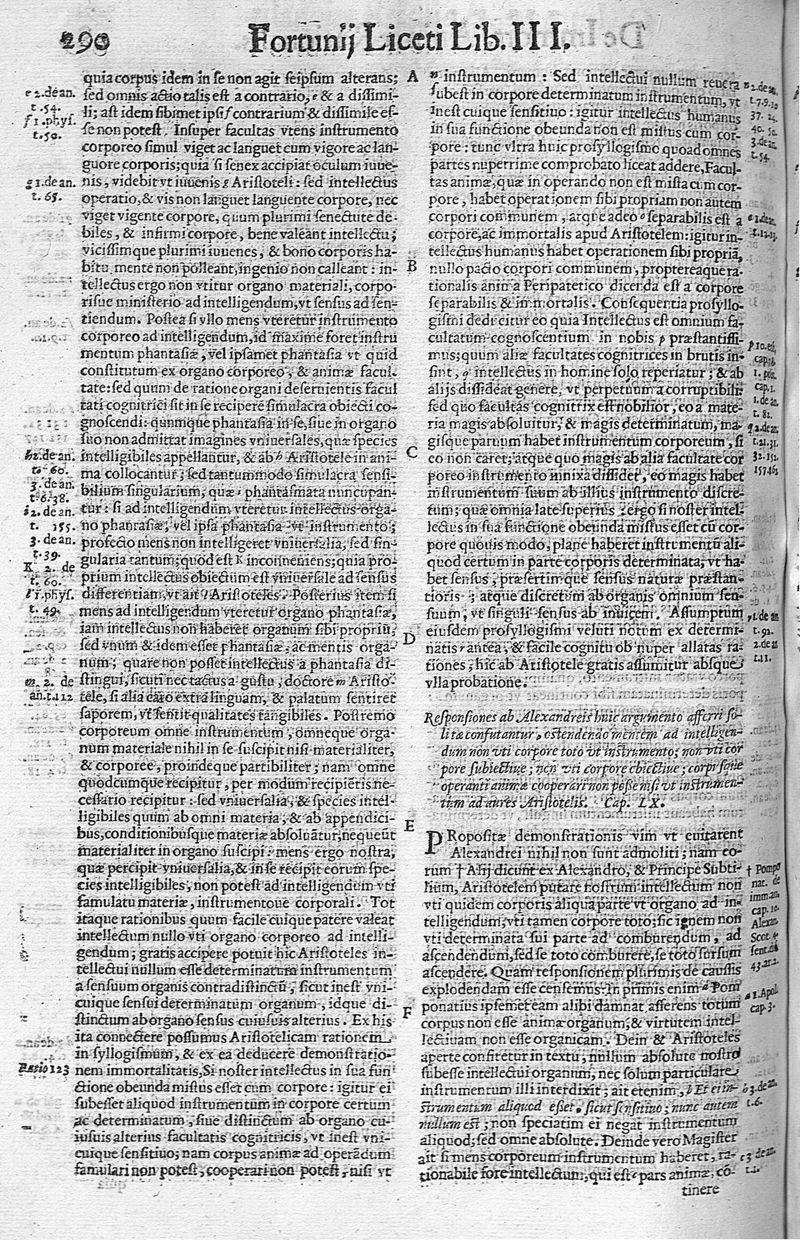 290 Fortunij Liceti Lib. III.
quia corpus idem in se non agit seipsum alterans;
sed omnis actio talis est a contrario, e & a dissimi-
li; ast idem sibimet ipsi f contrarium & dissimile es-
se non potest. Insuper facultas vtens instrumento
corporeo simul viget ac languet cum vigore ac lan-
guore corporis; quia si senex accipiat oculum iuue-
nis, videbit vt iuuenis g Aristoteli: sed intellectus
operatio, & vis non languet languente corpore, nec
viget vigente corpore, quum plurimi senectute de-
biles, & infirmi corpore, bene valeant intellectu;
vicissimque plurimi iuuenes, & bono corporis ha-
bitu mente non polleant, ingenio non calleant: in-
tellectus ergo non vtitur organo materiali, corpo-
risue ministerio ad intelligendum, vt sensus ad sen-
tiendum. Postea si vllo mens vteretur instrumento
corporeo ad intelligendum, id maxime foret instru
mentum phantasiæ, vel ipsamet phantasia vt quid
constitutum ex organo corporeo, & animæ facul-
tate: sed quum de ratione organi deseruientis facul
tati cognitrici sit in se recipere simulacra obiecti co-
gnoscendi: quumque phantasia in se, siue in organo
suo non admittat imagines vniuersales, quæ species
intelligibiles appellantur, & ab h Aristotele in ani-
ma collocantur; sed tantummodo simulacra sensi-
bilium singularium, quæ i phantasmata nuncupan-
tur: si ad intelligendum vteretur intellectus orga-
no phantasiæ, vel ipsa phantasia vt instrumento;
profecto mens non intelligeret vniuersalia, sed sin-
gularia tantum; quod est K inconueniens; quia pro-
prium intellectus obiectum est vniuersale ad sensus
differentiam, vt ait l Aristoteles. Posterius item si
mens ad intelligendum vteretur organo phantasiæ,
iam intellectus non haberet organum sibi propriū,
sed vnum & idem esset phantasiæ, ac mentis orga-
num; quare non posset intellectus a phantasia di-
stingui, sicuti nec tactus a gustu, doctore m Aristo-
tele, si alia caro extra linguam, & palatum sentiret
saporem, vt sentit qualitates tangibiles. Postremo
corporeum omne instrumentum, omneque orga-
num materiale nihil in se suscipit nisi materialiter,
& corporee, proindeque partibiliter; nam omne
quodcumque recipitur, per modum recipiētis ne-
cessario recipitur: sed vniuersalia, & species intel-
ligibiles quum ab omni materia, & ab appendici-
bus, conditionibusque materiæ absoluātur, nequeūt
materialiter in organo suscipi: mens ergo nostra,
quæ percipit vniuersalia, & in se recipit eorum spe-
cies intelligibiles, non potest ad intelligendum vti
famulatu materiæ, instrumentoue corporali. Tot
itaque rationibus quum facile cuique patere valeat
intellectum nullo vti organo corporeo ad intelli-
gendum; gratis accipere potuit hic Aristoteles in-
tellectui nullum esse determinatum instrumentum
a sensuum organis contradistinctū, sicut inest vni-
cuique sensui determinatum organum, idque di-
stinctum ab organo sensus cuiusuis alterius. Ex his
ita connectere possumus Aristotelicam rationem
in syllogismum, & ex ea deducere demonstratio-
nem immortalitatis, Si noster intellectus in sua fun-
ctione obeunda mistus esset cum corpore: igitur ei
subesset aliquod instrumentum in corpore certum
ac determinatum, siue distinctum ab organo cu-
iusuis alterius facultatis cognitricis, vt inest vni-
cuique sensitiuo; nam corpus animæ ad operādum
famulari non potest, cooperari non potest, nisi vt
e 2. de an.
t. 54.
f 1. phys.
t. 50.
g 1. de an.
t. 65.
h 2. de an.
t. 60.
3. de an.
t. 6. 38.
i 2. de an.
t. 155.
3. de an.
t. 39.
K 2. de
t. 60.
l 1. phys.
t. 49.
m. 2. de
an. t. 112
Ratio 123
A
B
C
D
E
F
n instrumentum: Sed intellectui nullum reuera
subest in corpore determinatum instrumentum, vt
inest cuique sensitiuo: igitur intellectus humanus
in sua functione obeunda non est mistus cum cor-
pore: tunc vltra huic prosyllogismo quoad omnes
partes nuperrime comprobato liceat addere, Facul-
tas animæ, quæ in operando non est mista cum cor-
pore, habet operationem sibi propriam non autem
corpori communem, atque adeo o separabilis est a
corpore, ac immortalis apud Aristotelem: igitur in-
tellectus humanus habet operationem sibi propria,
nullo pacto corpori communem, proptereaque ra-
tionalis anima Peripatetico dicenda est a corpore
separabilis & immortalis. Consequertia prosyllo-
gismi deducitur eo quia Intellectus est omnium fa-
cultatum cognoscentium in nobis p præstantissi-
mus; quum aliæ facultates cognitrices in brutis in-
sint, intellectus in homine solo reperiatur; & ab
alijs dissideat genere, vt perpetuum a corruptibili:
sed quo facultas cognitrix est nobilior, eo a mate-
ria magis absoluitur, & magis determinatum, ma-
gisque paruum habet instrumentum corporeum, si
eo non caret; atque quo magis ab alia facultate cor
poreo instrumento innixa dissidet, eo magis habet
instrumentum suum ab illius instrumento discre-
tum; quæ omnia late superius: ergo si noster intel-
lectus in sua functione obeunda mistus esset cū cor-
pore quouis modo, plane haberet instrumentū ali-
quod certum in parte corporis determinata, vt ha-
bet sensus, præsertimque sensus naturæ præstan-
tioris; atque discretum ab organis omnium sen-
suum, vt singuli sensus ab inuicem. Assumptum
eiusdem prosyllogismi veluti notum ex determi-
natis r antea, & facile cognitu ob nuper allatas ra-
tiones, hic ab Aristotele gratis assumitur absque
vlla probatione.
Responsiones ab Alexandreis huic argumento afferri so-
litæ confutantur, ostendendo mentem ad intelligen-
dum non vti corpore toto vt instrumento; non vti cor
pore subiectiue; non vti corpore obiectiue; corpus que
operanti animæ cooperari non posse nisi vt instrumen-
tum ad aures Aristotelis. Cap. LX.
PRopositæ demonstrationis vim vt euitarent
Alexandrei nihil non sunt admoliti; nam eo-
rum † Alij dicunt ex Alexandro, & Principe Subti-
lium, Aristotelem putare nostrum intellectum non
vti quidem corporis aliqua parte vt organo ad in-
telligendum, vti tamen corpore toto; sic ignem non
vti determinata sui parte ad comburendum, ad
ascendendum, sed se toto comburere, se toto sursum
ascendere. Quam responsionem plurimis de caussis
explodendam esse censemus. In primis enim a Pom
ponatius ipsemet eam alibi damnat asserens totum
corpus non esse animæ organum; & virtutem intel-
lectiuam non esse organicam. Dein & Aristoteles
aperte confitetur in textu; nullum absolute nostro
subesse intellectui organum; nec solum particulare
instrumentum illi interdixit; ait etenim, b Et ei in-
strumentum aliquod esset, sicut sensitiuo; nunc autem
nullum est; non speciatim ei negat instrumentum
aliquod; sed omne absolute. Deinde vero Magister
ait si mens corporeum instrumentum haberet, ra-
tionabile fore intellectum, qui est c pars animæ, cō-
tinere
n 2. de an.
t. 7. 9. 10
37. 24.
40. 50.
3. de an.
t. 54.
o 1. de an.
t. 12. 13.
cap. 1.
1. de an.
t. 82.
q 2. de an.
t. 21. 31.
32. 151.
r 1. de an.
t. 92.
2. de an
t. 11.
† Pompo
nat. de
imm. an.
cap. 10.
Alex.
Scot. 4.
sent. d.
43. ar. 2.
a 1. Apol.
cap. 3.
b 3. de an.
t. 6.
c 3. de an.